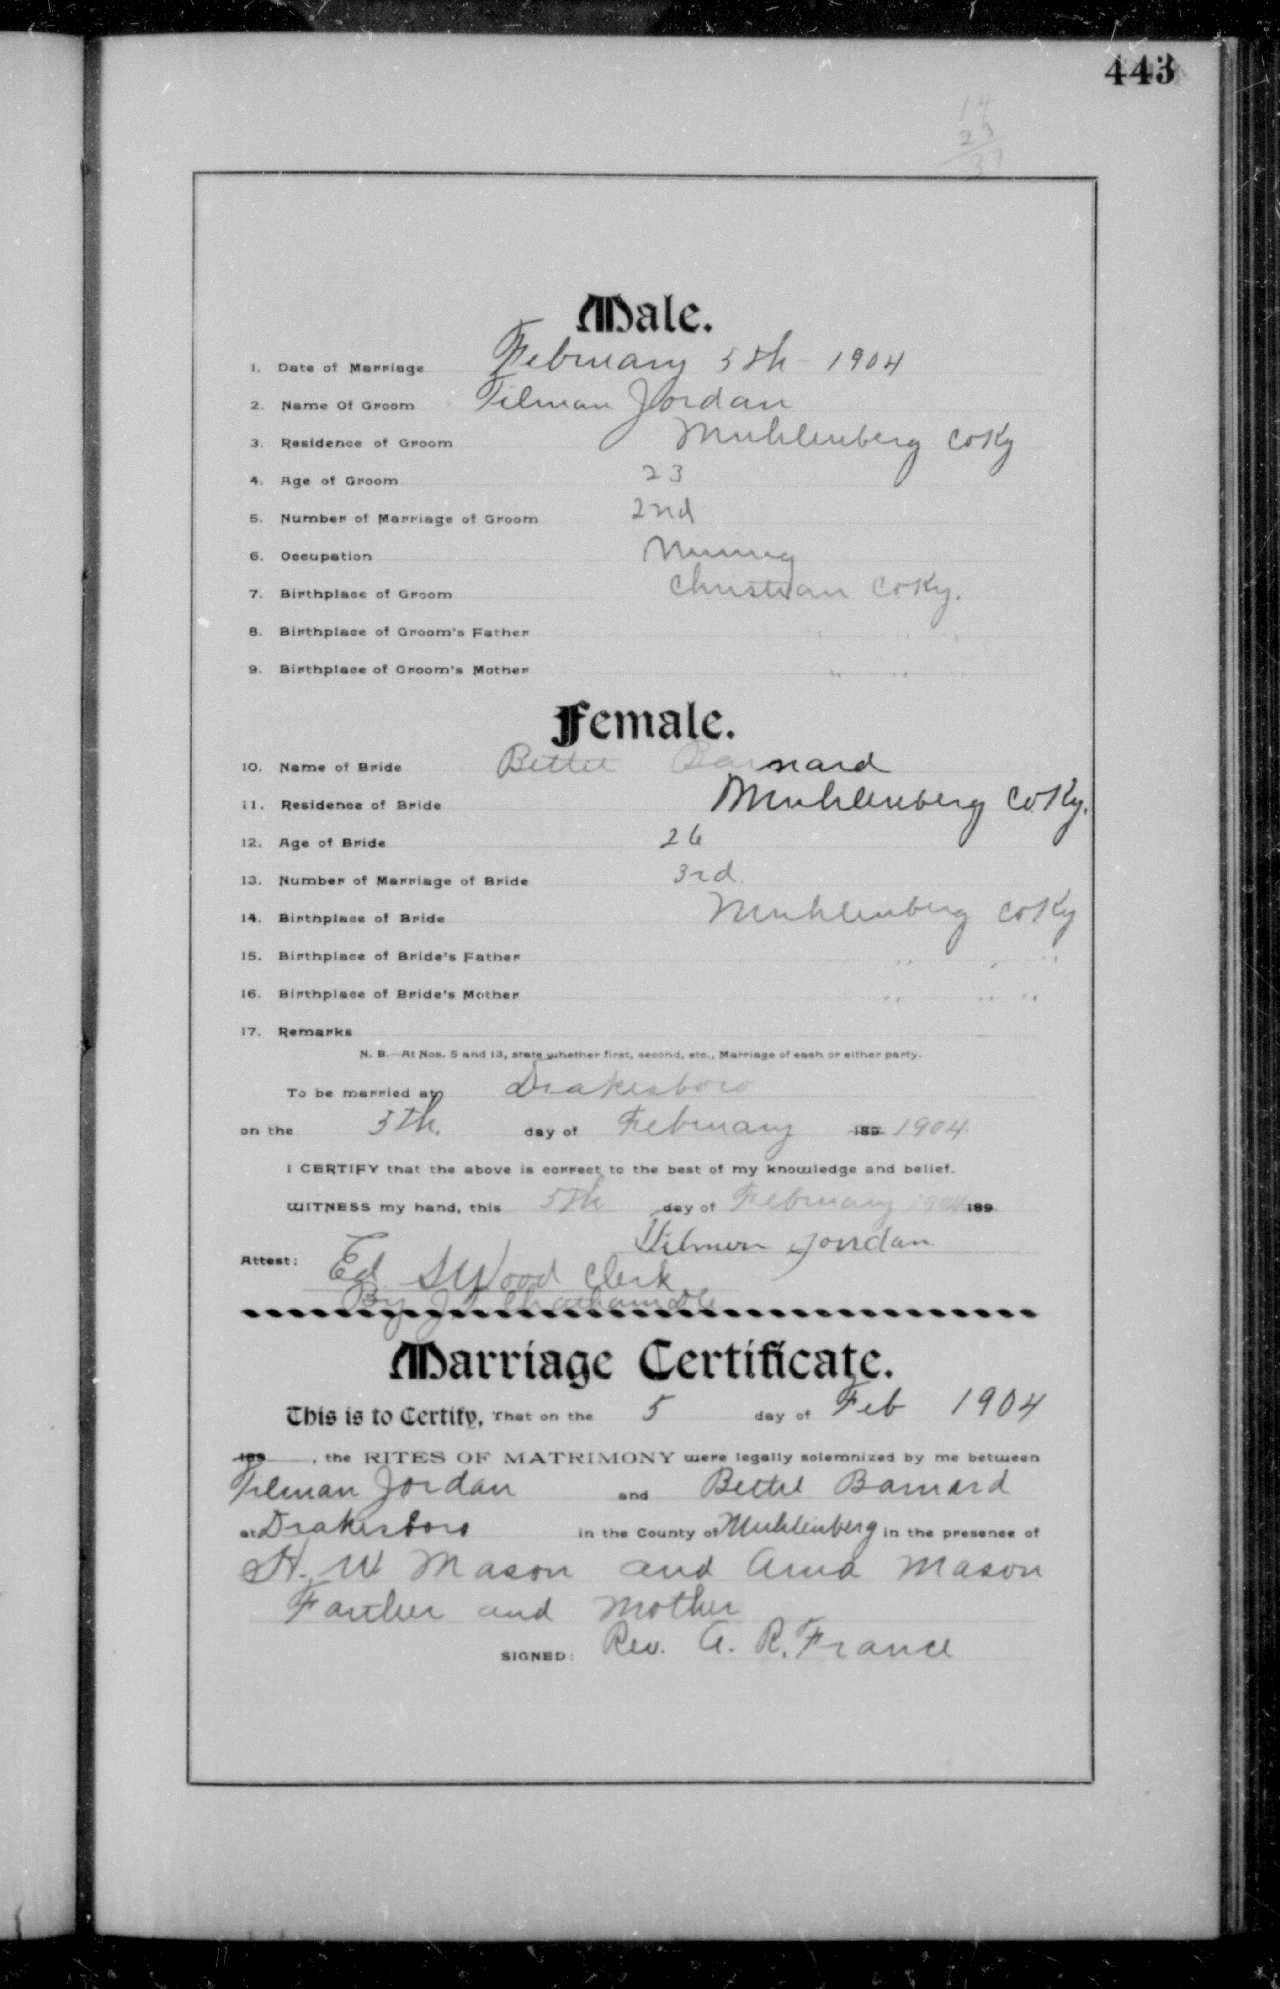 443
14
23
31
Male.
1. Date of Marriage February 5th 1904
2. Name Of Groom Tilman Jordan
3. Residence of Groom Muhlenberg Co Ky
4. Age of Groom 23
5. Number of Marriage of Groom 2nd
6. Occupation Mining
7. Birthplace of Groom Christian Co Ky.
8. Birthplace of Groom's Father " " "
9. Birthplace of Groom's Mother " " "
Female.
10. Name of Bride Bettie Barnard
11. Residence of Bride Muhlenberg Co Ky.
12. Age of Bride 26
13. Number of Marriage of Bride 3rd
14. Birthplace of Bride Muhlenberg Co Ky
15. Birthplace of Bride's Father " " "
16. Birthplace of Bride's Mother " " "
17. Remarks
N. B.—At Nos. 5 and 13, state whether first, second, etc., Marriage of each or either party.
To be married at Drakesboro
on the 5th. day of February 189 1904
I CERTIFY that the above is correct to the best of my knowledge and belief.
WITNESS my hand, this 5th day of February 1904 189
Tilman Jordan
Attest: Ed S Wood Clerk
By J
Marriage Certificate.
This is to Certify, That on the 5 day of Feb 1904
189 , the RITES OF MATRIMONY were legally solemnized by me between
Tilman Jordan and Bettie Barnard
at Drakesboro in the County of Muhlenberg in the presence of
H. W Mason and Mason
Farther and Mother
SIGNED: Rev. A. R. France